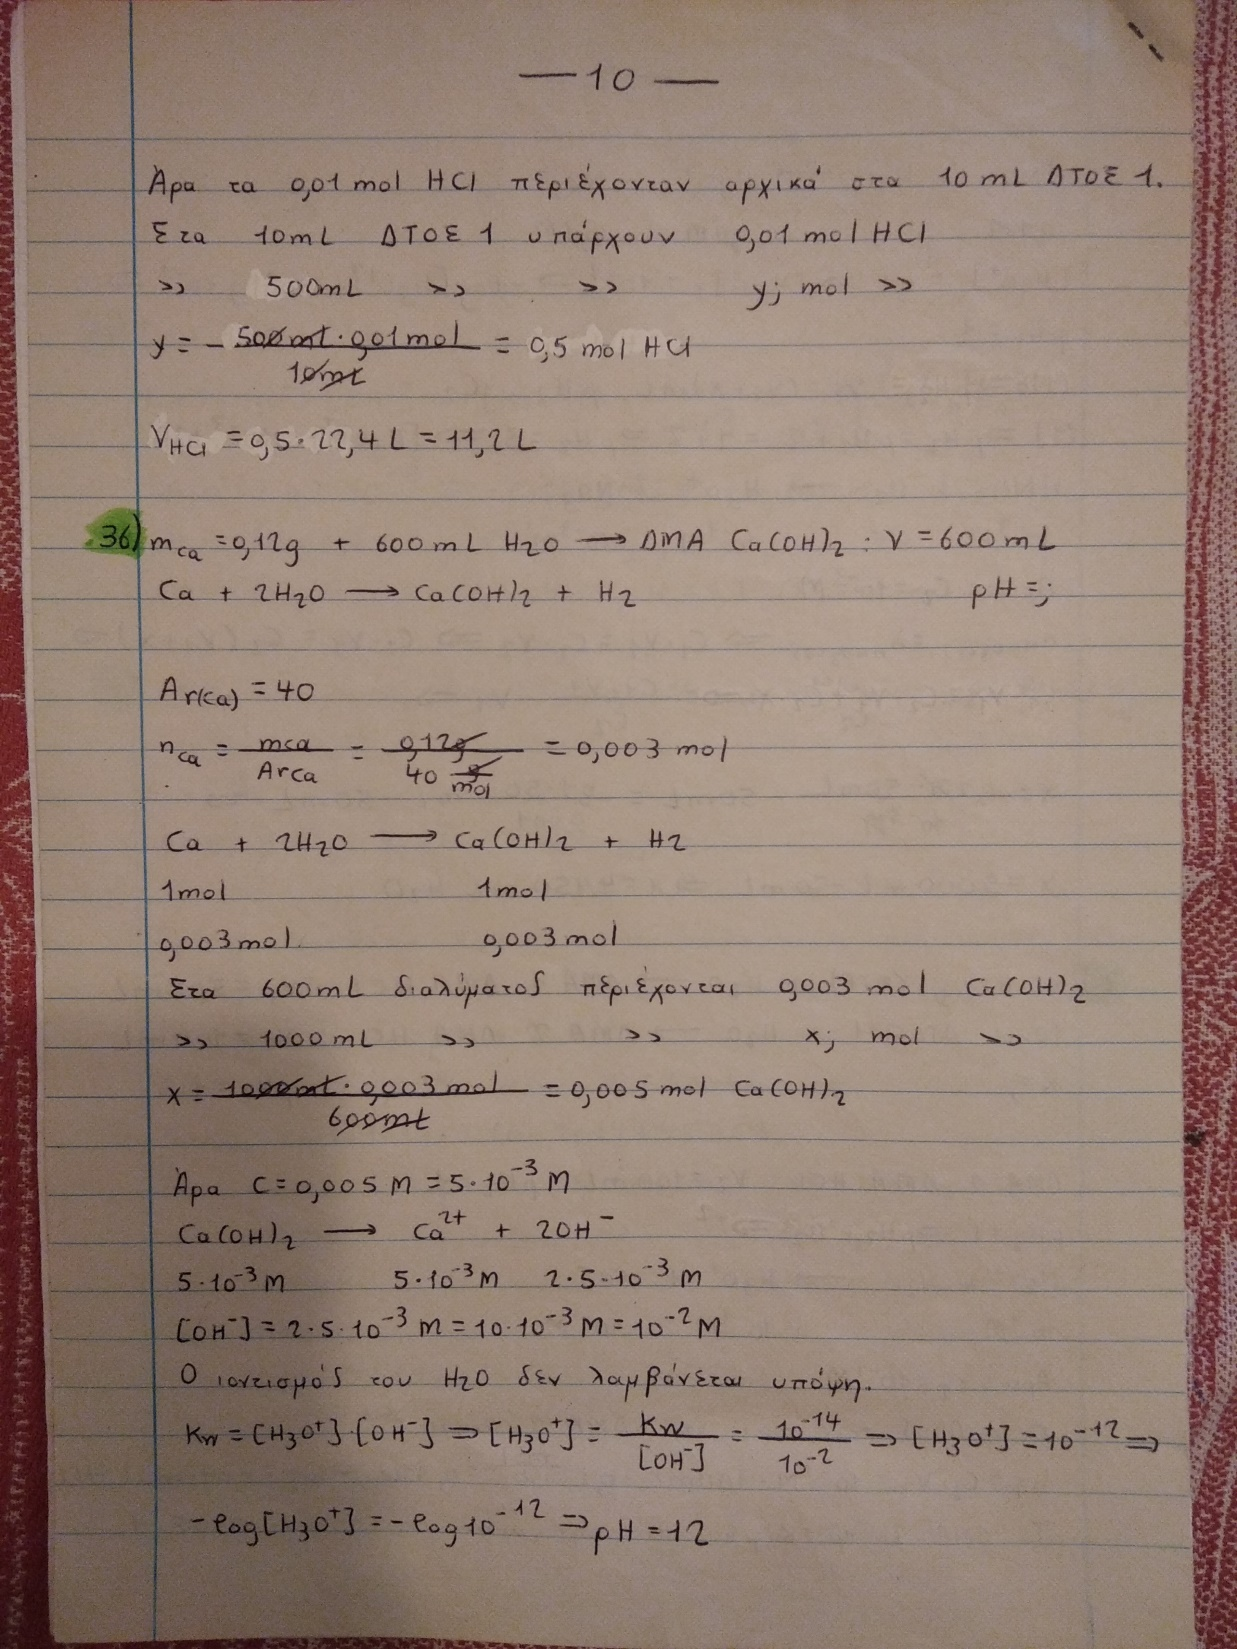 — 10 —
Άρα τα 0,01 mol HCl περιέχονταν αρχικά στα 10 mL ΔΤΟΣ 1.
Στα 10mL ΔΤΟΣ 1 υπάρχουν 0,01 mol HCl
>> 500mL >> >> y; mol >>
y = 500mL · 0,01 mol / 10mL = 0,5 mol HCl
VHCl = 0,5 · 22,4 L = 11,2 L
36) mCa = 0,12g + 600 mL H2O → ΔΜΑ Ca(OH)2 : V = 600 mL
Ca + 2H2O → Ca(OH)2 + H2 pH = ;
Ar(Ca) = 40
nCa = mCa / ArCa = 0,12g / 40 g/mol = 0,003 mol
Ca + 2H2O → Ca(OH)2 + H2
1mol 1mol
0,003 mol 0,003 mol
Στα 600mL διαλύματος περιέχονται 0,003 mol Ca(OH)2
>> 1000 mL >> >> x; mol >>
x = 1000mL · 0,003 mol / 600mL = 0,005 mol Ca(OH)2
Άρα C = 0,005 M = 5·10⁻³ M
Ca(OH)2 → Ca²⁺ + 2OH⁻
5·10⁻³ M 5·10⁻³ M 2·5·10⁻³ M
[OH⁻] = 2·5·10⁻³ M = 10·10⁻³ M = 10⁻² M
Ο ιοντισμός του H2O δεν λαμβάνεται υπόψη.
Kw = [H3O⁺]·[OH⁻] ⇒ [H3O⁺] = Kw / [OH⁻] = 10⁻¹⁴ / 10⁻² ⇒ [H3O⁺] = 10⁻¹² ⇒
-log[H3O⁺] = -log10⁻¹² ⇒ pH = 12